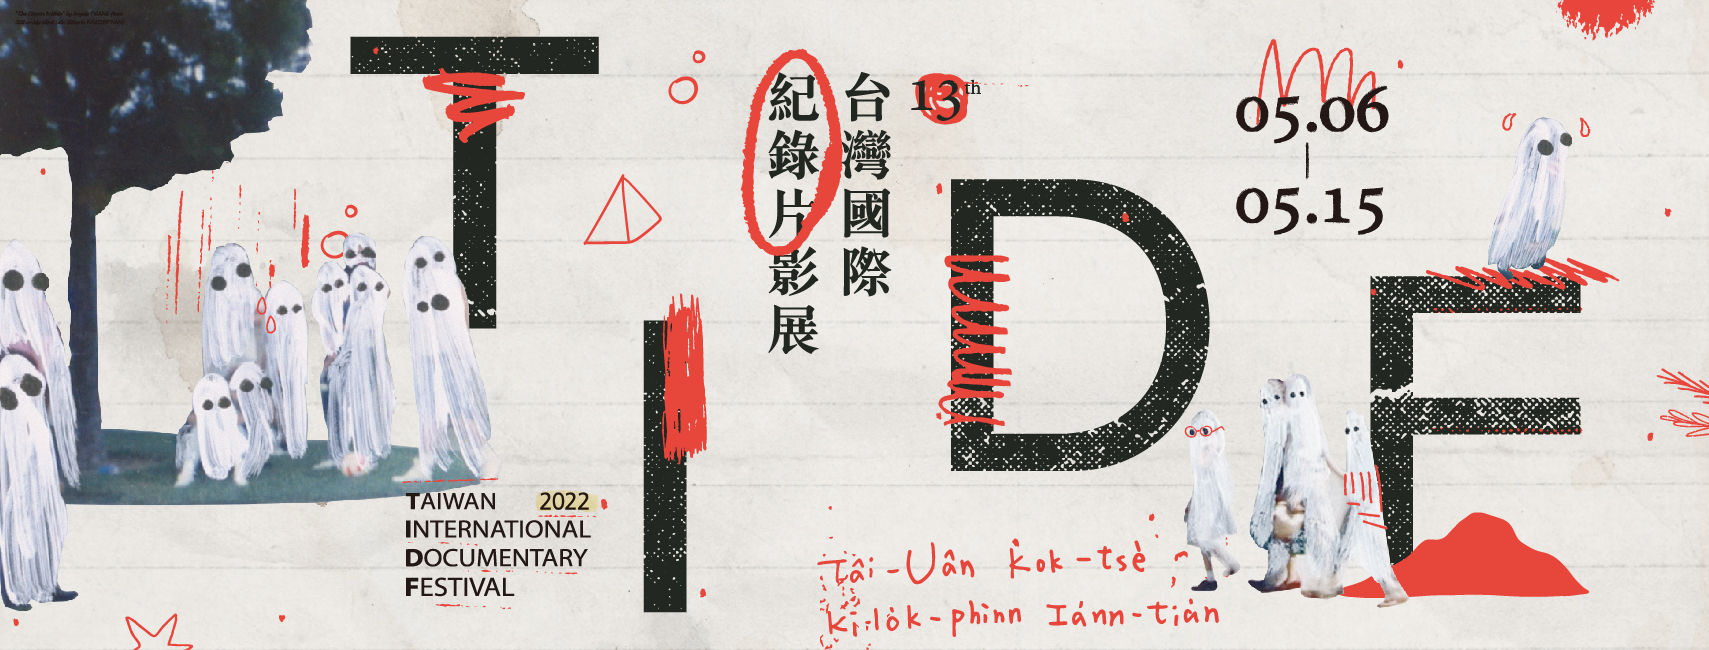 TIDF
13th
台灣國際
紀錄片影展
05.06
05.15
TAIWAN 2022
INTERNATIONAL
DOCUMENTARY
FESTIVAL
Tâi-Uân kok-tsè
Kì-lo̍k-phìnn Iánn-tián